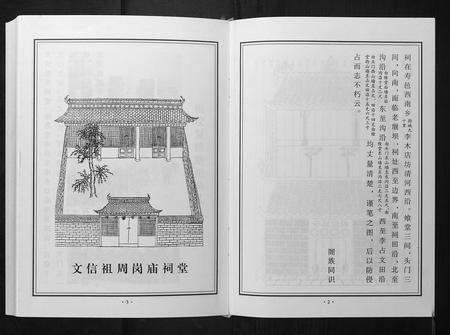 祠在寿邑西南乡李木店坊清河西沿。雄堂三间，头门三
间，向南，面临老堰坝，祠址西至边界，南至祠田沿，北至
沟沿东至沟沿西至李占文田沿
均丈量清楚，谨笔之图，后以防侵
占而志不朽云。
阖族同识
·2·
文信祖周岗庙祠堂
·3·